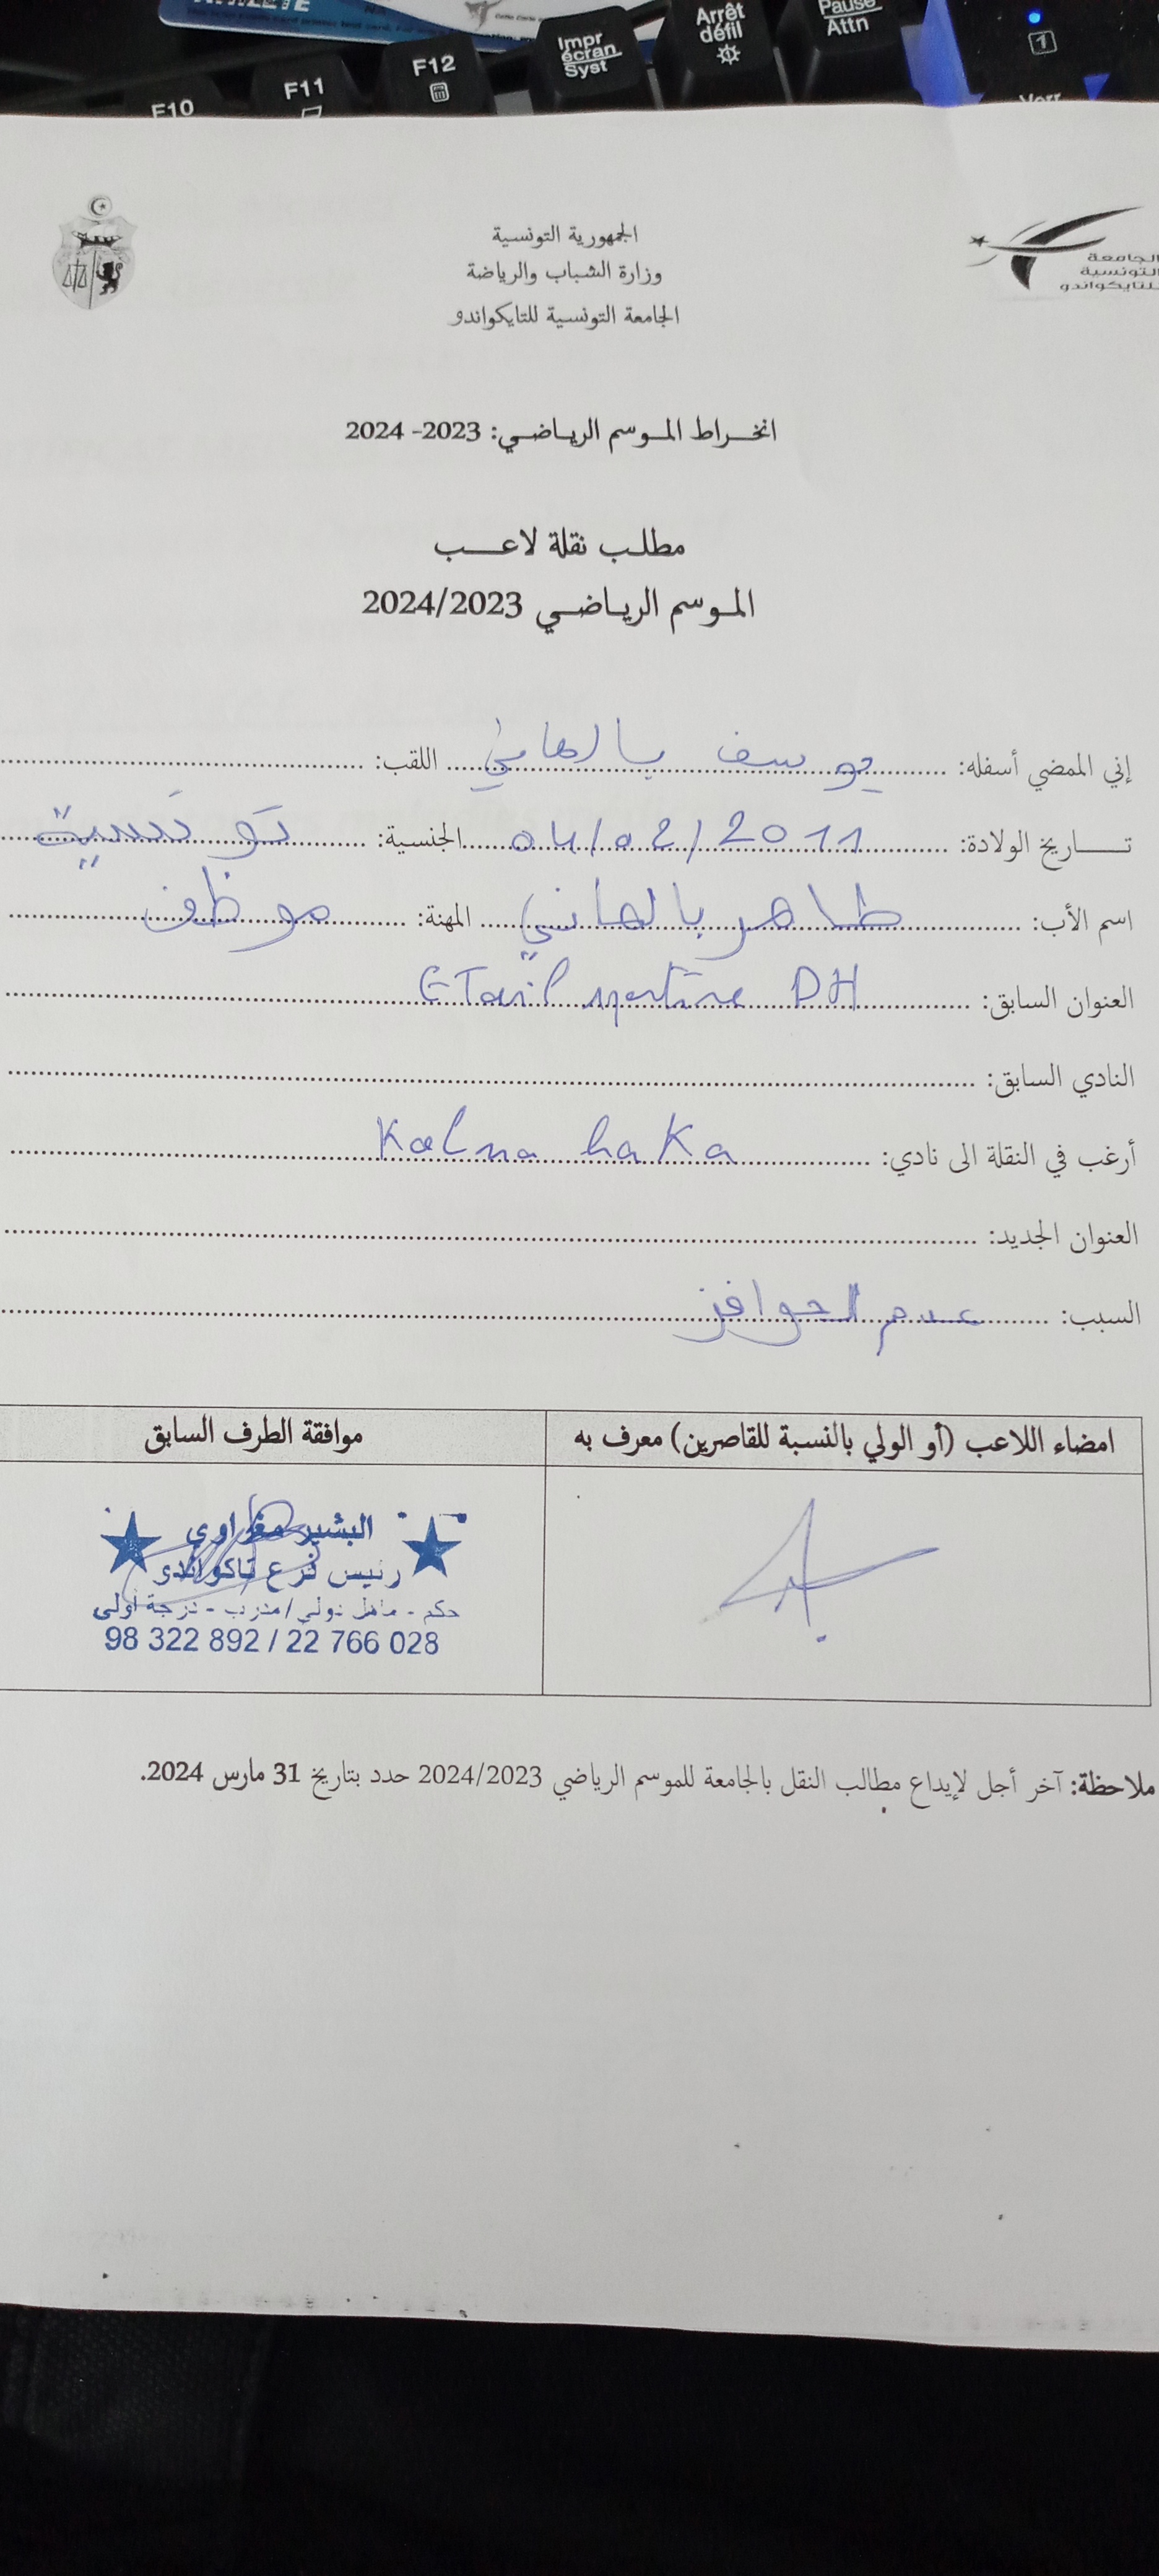 Impr écran Syst
Arrêt défil
Pause Attn
F10
F11
F12
1
الجامعة
التونسية
للتايكواندو
الجمهورية التونسية
وزارة الشباب والرياضة
الجامعة التونسية للتايكواندو
انخراط الموسم الرياضي: 2023- 2024
مطلب نقلة لاعب
الموسم الرياضي 2024/2023
إني الممضي أسفله: يوسف بالهاني اللقب:
تاريخ الولادة: 04/02/2011 الجنسية: تونسية
اسم الأب: طاهر بالهاني المهنة: موظف
العنوان السابق: DH
النادي السابق:
أرغب في النقلة الى نادي: Kalna haKa
العنوان الجديد:
السبب: عدم الحوافز
امضاء اللاعب (أو الولي بالنسبة للقاصرين) معرف به
موافقة الطرف السابق
البشير مغراوي
رئيس فرع تاكواندو
حكم - دولي / مدرب - درجة أولى
98 322 892 / 22 766 028
ملاحظة: آخر أجل لإيداع مطالب النقل بالجامعة للموسم الرياضي 2024/2023 حدد بتاريخ 31 مارس 2024.